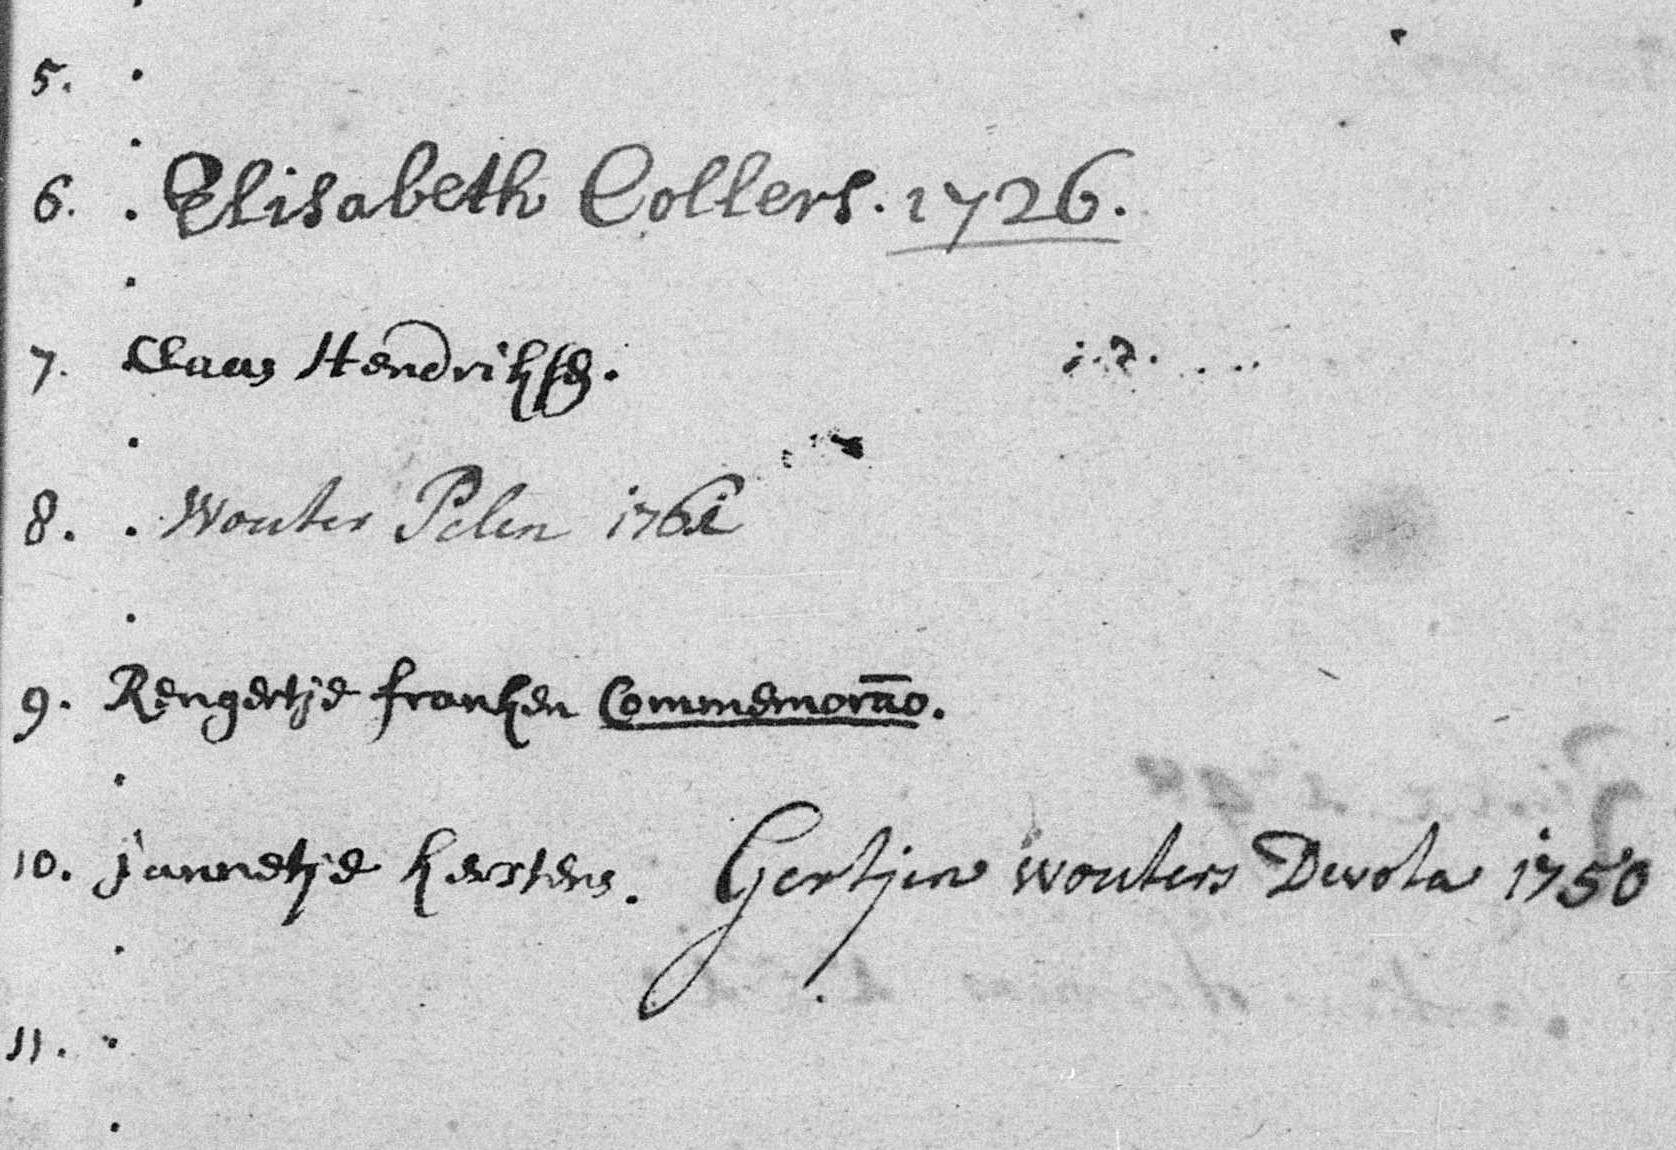 5.
6. Elisabeth Collers. 1726.
7. Claas Hendrikse.
8. Wouter Pelen 1761
9. Rengertje franken Commemorāo.
10. jannetje kerstens. Gertjen wouters Devota 1750
11.